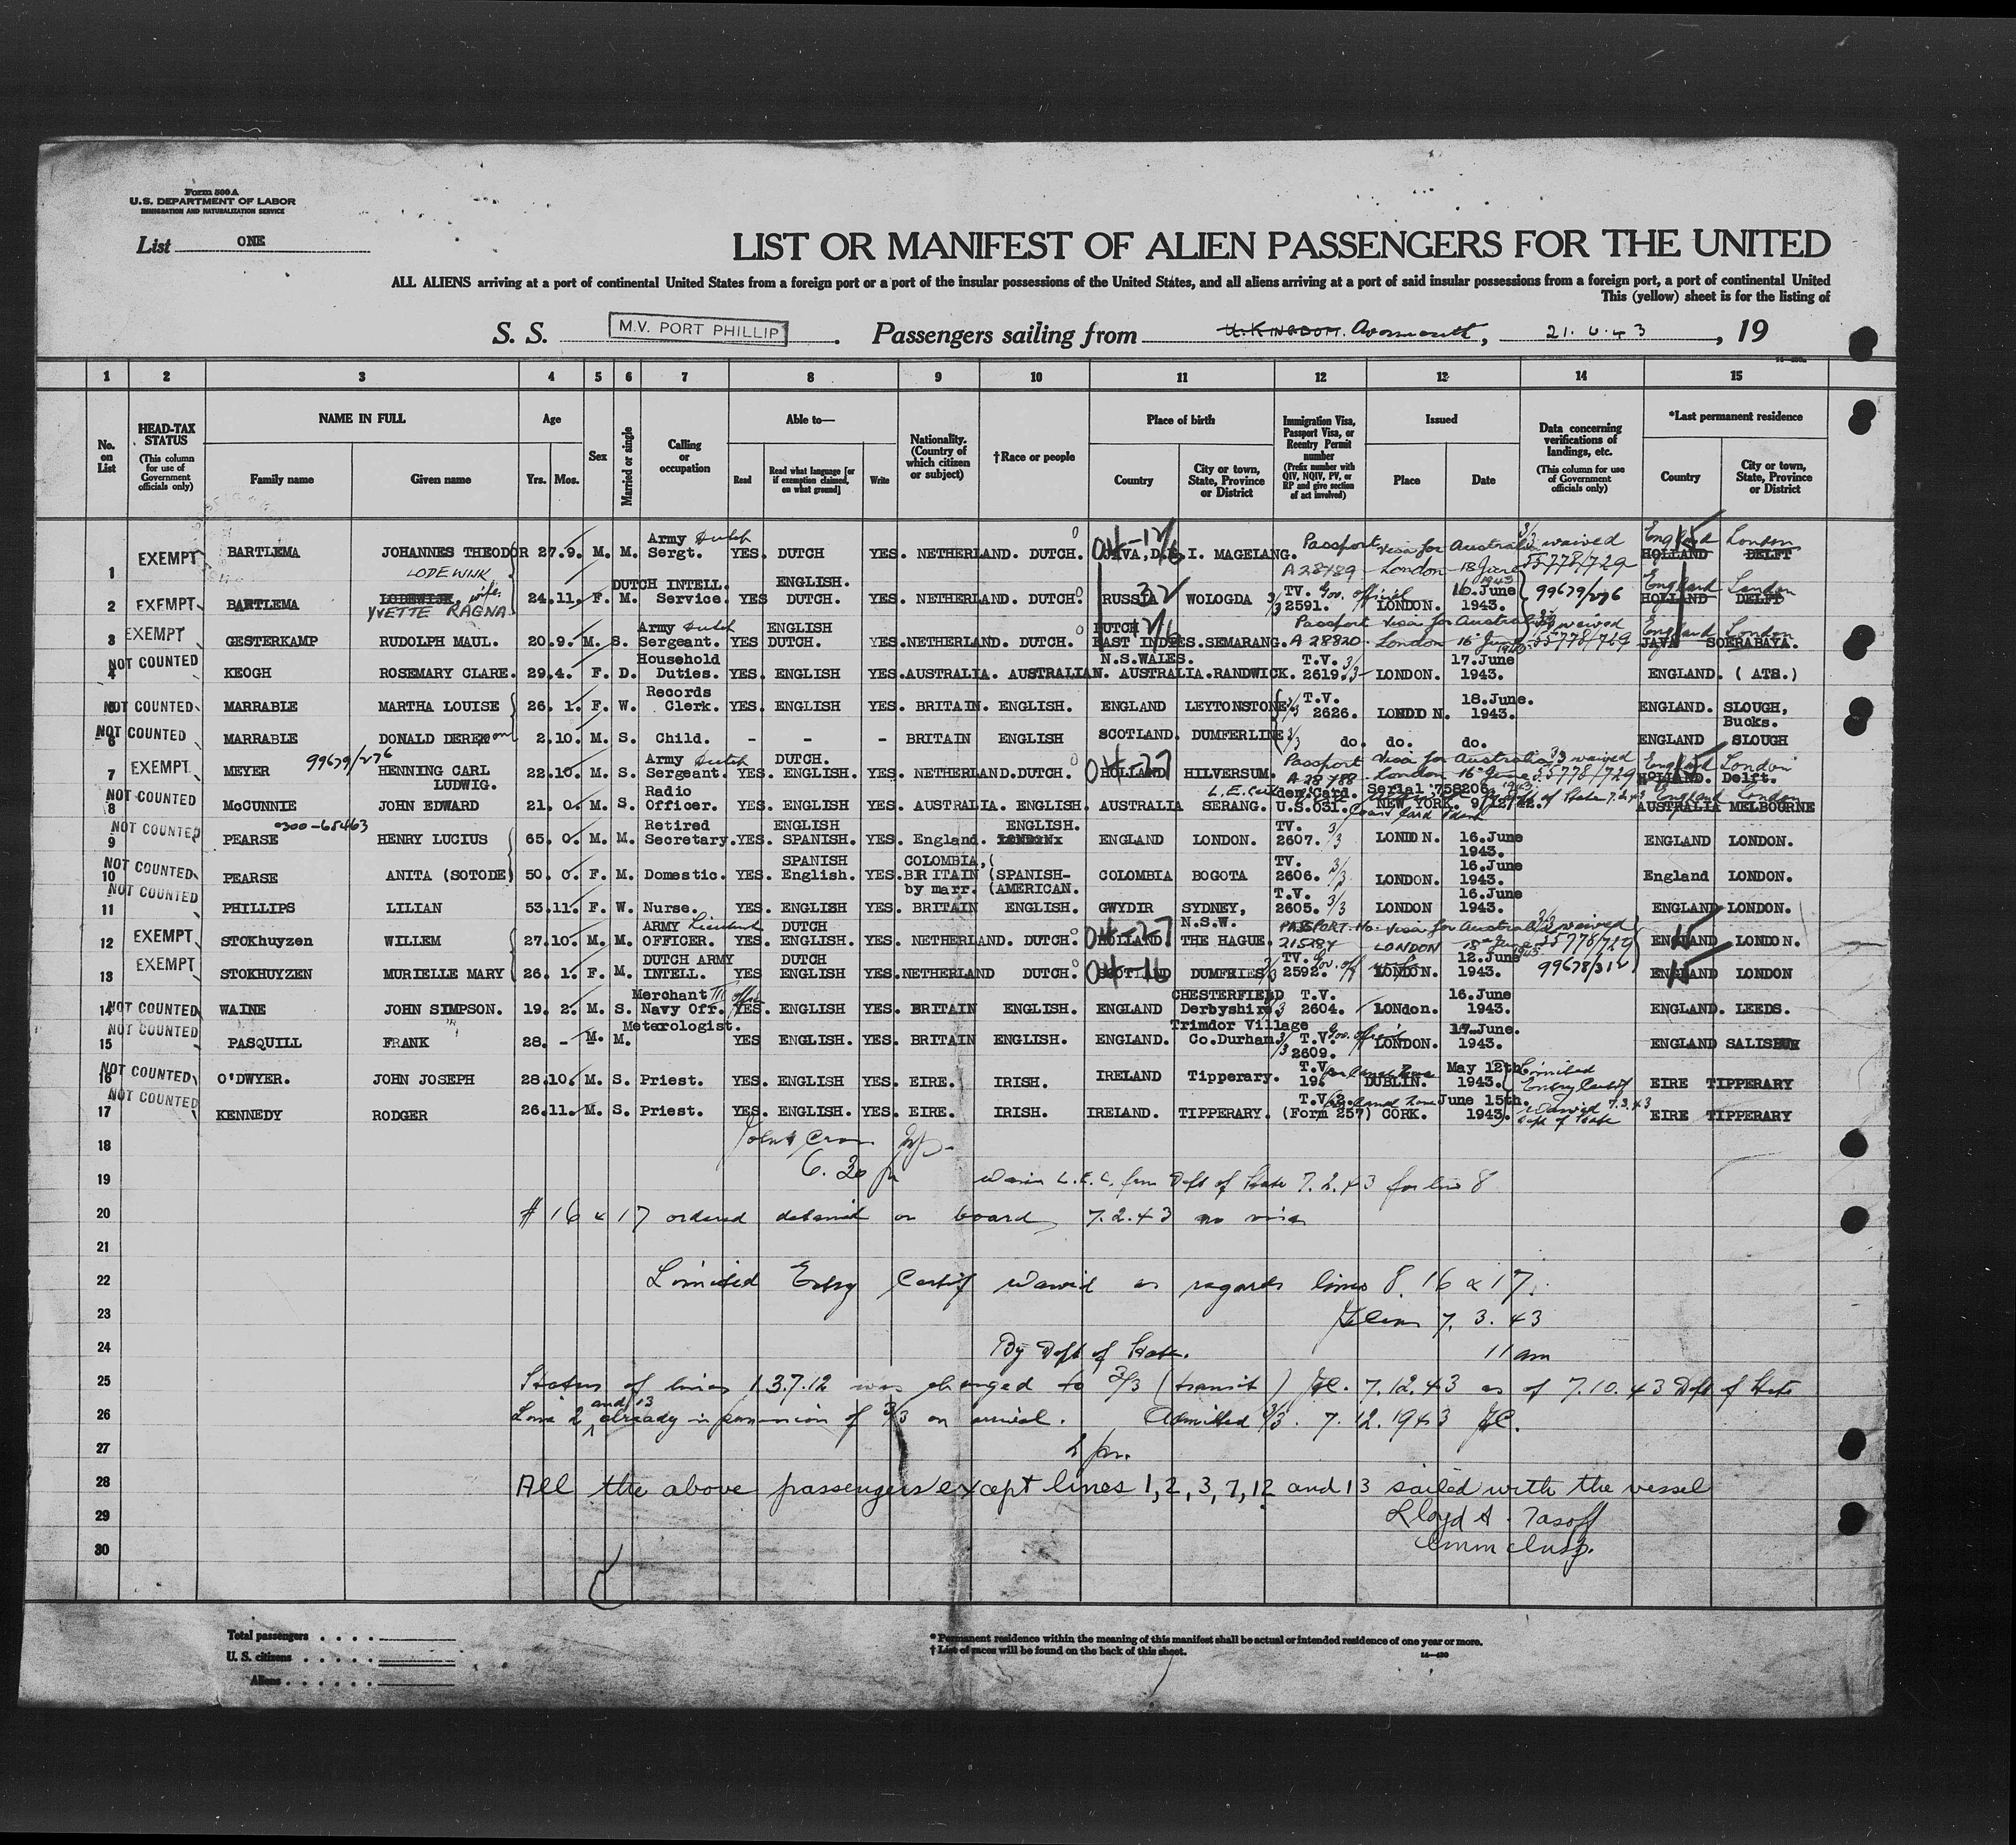 Form 500 A
U.S. DEPARTMENT OF LABOR
IMMIGRATION AND NATURALIZATION SERVICE
List ONE
LIST OR MANIFEST OF ALIEN PASSENGERS FOR THE UNITED
ALL ALIENS arriving at a port of continental United States from a foreign port or a port of the insular possessions of the United States, and all aliens arriving at a port of said insular possessions from a foreign port, a port of continental United
This (yellow) sheet is for the listing of
S. S. M.V. PORT PHILLIP. Passengers sailing from U. KINGDOM. Avonmouth, 21. 6. 43, 19
1 2 3 4 5 6 7 8 9 10 11 12 13 14 15
No. on List
HEAD-TAX STATUS (This column for use of Government officials only)
NAME IN FULL
Family name
Given name
Age
Yrs. Mos.
Sex
Married or single
Calling or occupation
Able to—
Read
Read what language [or if exemption claimed, on what ground]
Write
Nationality. (Country of which citizen or subject)
†Race or people
Place of birth
Country
City or town, State, Province or District
Immigration Visa, Passport Visa, or Reentry Permit number (Prefix number with QIV, NQIV, PV, or RP and give section of act involved)
Issued
Place
Date
Data concerning verifications of landings, etc. (This column for use of Government officials only)
*Last permanent residence
Country
City or town, State, Province or District
1 EXEMPT BARTLEMA JOHANNES THEODOR LODEWIJK 27.9. M. M. Army Dutch Sergt. YES. DUTCH YES. NETHERLAND. DUTCH. JAVA, D.E.I. MAGELANG. Passport visa for Australia 3/3 waived A28789 London 18 June 1943 55778/729 England London HOLLAND DELFT
2 EXEMPT BARTLEMA LODEWIJK, wife. YVETTE RAGNA 24.11. F. M. DUTCH INTELL. Service. YES ENGLISH. DUTCH. YES. NETHERLAND. DUTCH. RUSSIA 32 WOLOGDA 3/3 TV. Gov. official 2591. LONDON. 16.June 1943. 99679/276 England London HOLLAND DELFT
3 EXEMPT GESTERKAMP RUDOLPH MAUL. 20.9. M. S. Army Dutch Sergeant. YES ENGLISH DUTCH. YES. NETHERLAND. DUTCH. DUTCH EAST INDIES. SEMARANG. Passport visa for Australia 3/3 waived A 28820 London 16 June 1943 55778/729 England London JAVA SOERABAYA.
4 NOT COUNTED KEOGH ROSEMARY CLARE. 29.4. F. D. Household Duties. YES. ENGLISH YES. AUSTRALIA. AUSTRALIAN. N.S.WALES. AUSTRALIA. RANDWICK. T.V. 2619. 3/3 LONDON. 17.June 1943. ENGLAND. ( ATS.)
5 NOT COUNTED MARRABLE MARTHA LOUISE 26. 1. F. W. Records Clerk. YES. ENGLISH YES. BRITAIN. ENGLISH. ENGLAND LEYTONSTONE 3/3 T.V. 2626. LONDON. 18.June. 1943. ENGLAND. SLOUGH, Bucks.
6 NOT COUNTED MARRABLE DONALD DEREK son 2.10. M. S. Child. - - - BRITAIN ENGLISH SCOTLAND. DUMFERLINE 3/3 do. do. do. ENGLAND SLOUGH
7 EXEMPT 99679/276 MEYER HENNING CARL LUDWIG. 22.10. M. S. Army Dutch Sergeant. YES. DUTCH. ENGLISH. YES. NETHERLAND. DUTCH. 04-27 HOLLAND HILVERSUM. Passport visa for Australia 3/3 waived A 28788 London 16 June 55778/729 England London HOLLAND. Delft.
8 NOT COUNTED McCUNNIE JOHN EDWARD 21. 0. M. S. Radio Officer. YES. ENGLISH YES. AUSTRALIA. ENGLISH. AUSTRALIA SERANG. Iden.Card. Serial 758206 U.S.031. NEW YORK. 9/12/42. England London AUSTRALIA MELBOURNE
9 NOT COUNTED 0300-65463 PEARSE HENRY LUCIUS 65. 0. M. M. Retired Secretary. YES. ENGLISH SPANISH. YES. England. ENGLISH. ENGLAND LONDON. TV. 2607. 3/3 LONDON. 16.June 1943. ENGLAND LONDON.
10 NOT COUNTED PEARSE ANITA (SOTODE) 50. 0. F. M. Domestic. YES. SPANISH English. YES. COLOMBIA, BRITAIN by marr. (SPANISH-AMERICAN. COLOMBIA BOGOTA TV. 2606. 3/3 LONDON. 16.June 1943. England LONDON.
11 NOT COUNTED PHILLIPS LILIAN 53.11. F. W. Nurse. YES. ENGLISH YES. BRITAIN ENGLISH. GWYDIR SYDNEY, N.S.W. T.V. 2605. 3/3 LONDON 16.June 1943. ENGLAND LONDON.
12 EXEMPT STOKhuyzen WILLEM 27.10. M. M. ARMY Lieutenant OFFICER. YES. DUTCH ENGLISH. YES. NETHERLAND. DUTCH. 04-27 HOLLAND. THE HAGUE. PASSPORT No. visa for Australia 3/3 waived 21587 LONDON 18th June 1943 55778/729 ENGLAND LONDON.
13 EXEMPT STOKHUYZEN MURIELLE MARY 26. 1. F. M. DUTCH ARMY INTELL. YES DUTCH ENGLISH YES. NETHERLAND DUTCH. 04-16 SCOTLAND DUMFRIES 3/3 TV. Gov. off 2592. LONDON. 12.June 1943. 99678/312 ENGLAND LONDON
14 NOT COUNTED WAINE JOHN SIMPSON. 19. 2. M. S. Merchant III offr Navy Off. YES. ENGLISH YES. BRITAIN ENGLISH. ENGLAND CHESTERFIELD Derbyshire. 3/3 T.V. 2604. LONdon. 16.June 1943. ENGLAND. LEEDS.
15 NOT COUNTED PASQUILL FRANK 28. - M. M. Meterologist. YES ENGLISH. YES. BRITAIN ENGLISH. ENGLAND. Trimdor Village Co.Durham 3/3 T.V. Gov. official 2609. LONDON. 17.June. 1943. ENGLAND SALISBUR
16 NOT COUNTED O'DWYER. JOHN JOSEPH 28.10. M. S. Priest. YES. ENGLISH YES. EIRE. IRISH. IRELAND Tipperary. T.V. Canal Zone 19. DUBLIN. May 12th 1943. Limited Entry Certif EIRE TIPPERARY
17 NOT COUNTED KENNEDY RODGER 26.11. M. S. Priest. YES. ENGLISH. YES. EIRE. IRISH. IRELAND. TIPPERARY. T.V. Canal Zone (Form 257) CORK. June 15th. 1943. waived 7.3.43 Dept of State EIRE TIPPERARY
18
6. 30
19 L.E.C. from Dept of State 7.2.43 for line 8
20 # 16 & 17 ordered detained on board 7.2.43 no visa
21
22 Limited Entry Certif waived as regards lines 8, 16 & 17.
23 7. 3. 43
24 By Dept of State. 11 am
25 Status of lines 1.3.7.12 was changed to 3/3 (transit) 7.12.43 as of 7.10.43 Dept of State
26 Line 2 and 13 already in possession of 3/3 on arrival. Admitted 3/3. 7.12.1943
27
28 All the above passengers except lines 1, 2, 3, 7, 12 and 13 sailed with the vessel
29 Lloyd A. Tasoff
30 Imm Insp.
Total passengers . . . .
U. S. citizens . . . . .
Aliens . . . . . .
* Permanent residence within the meaning of this manifest shall be actual or intended residence of one year or more.
† List of races will be found on the back of this sheet.